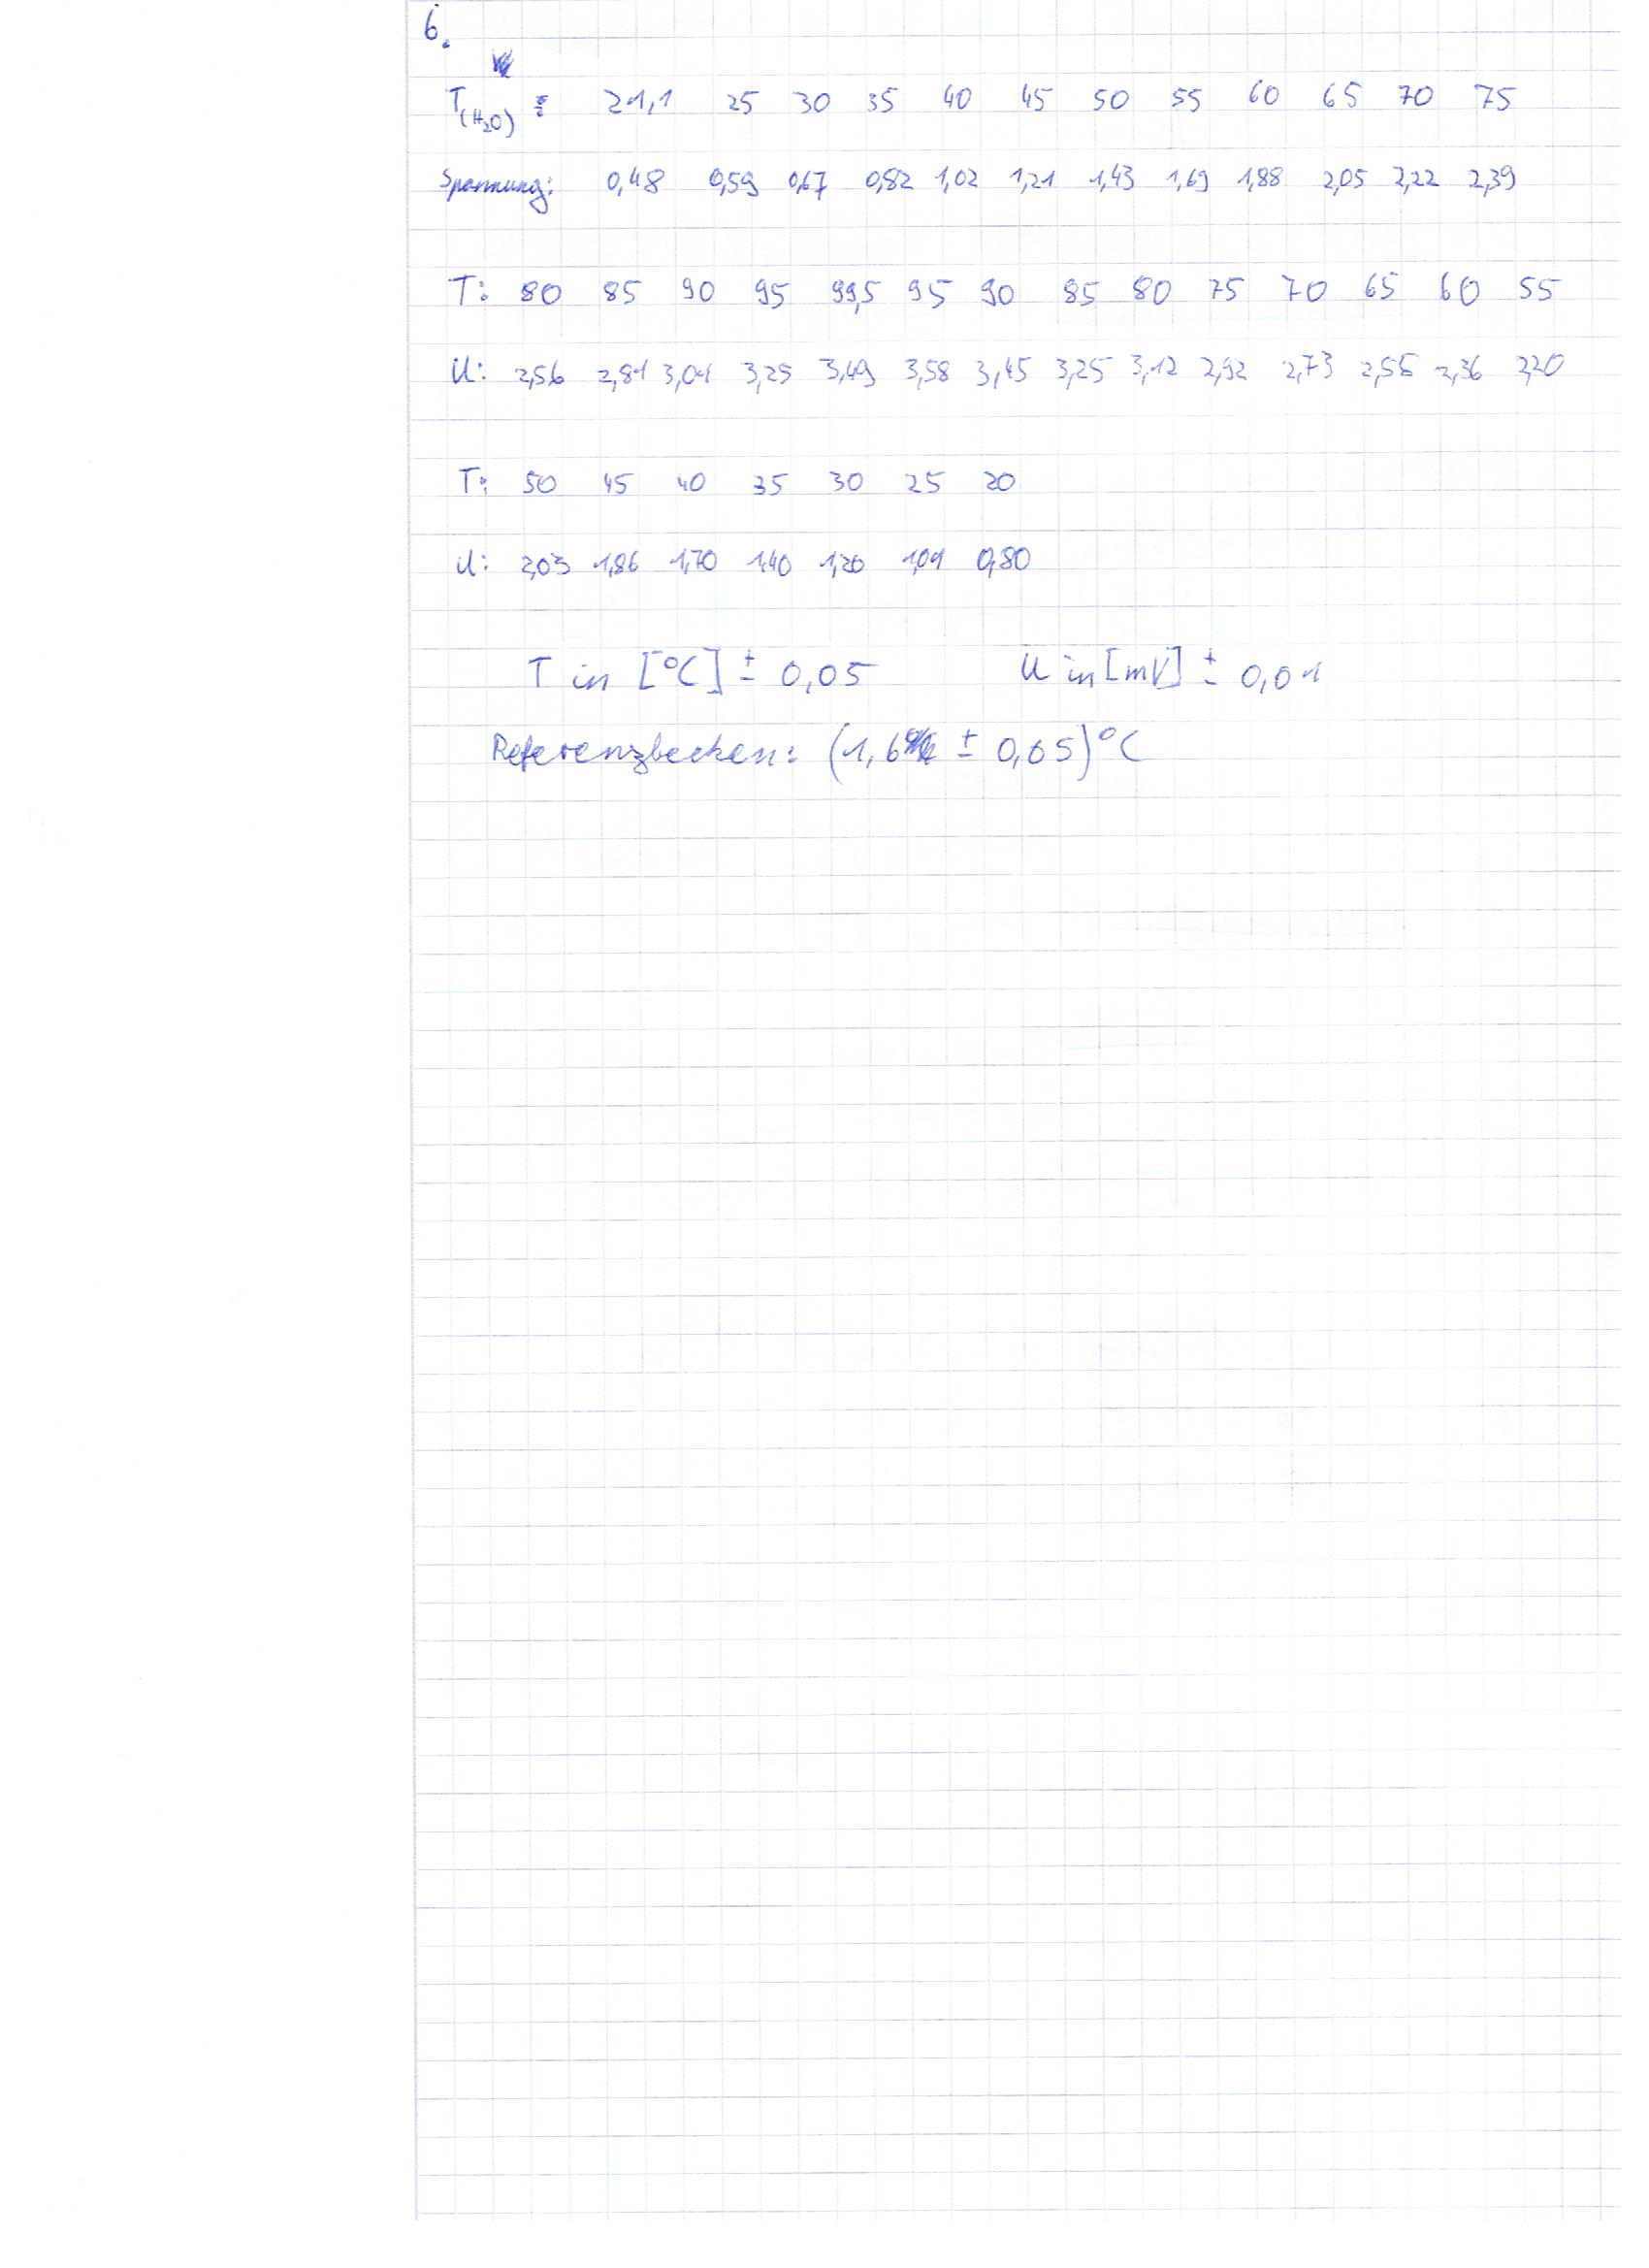 6.
T(H₂O): 21,1 25 30 35 40 45 50 55 60 65 70 75
Spannung: 0,48 0,59 0,67 0,82 1,02 1,21 1,43 1,69 1,88 2,05 2,22 2,39
T: 80 85 90 95 99,5 95 90 85 80 75 70 65 60 55
U: 2,56 2,81 3,01 3,25 3,49 3,58 3,45 3,25 3,12 2,92 2,73 2,56 2,36 2,20
T: 50 45 40 35 30 25 20
U: 2,03 1,86 1,70 1,40 1,20 1,01 0,80
T in [°C] ± 0,05 U in [mV] ± 0,01
Referenzbecken: (1,6 ± 0,05)°C